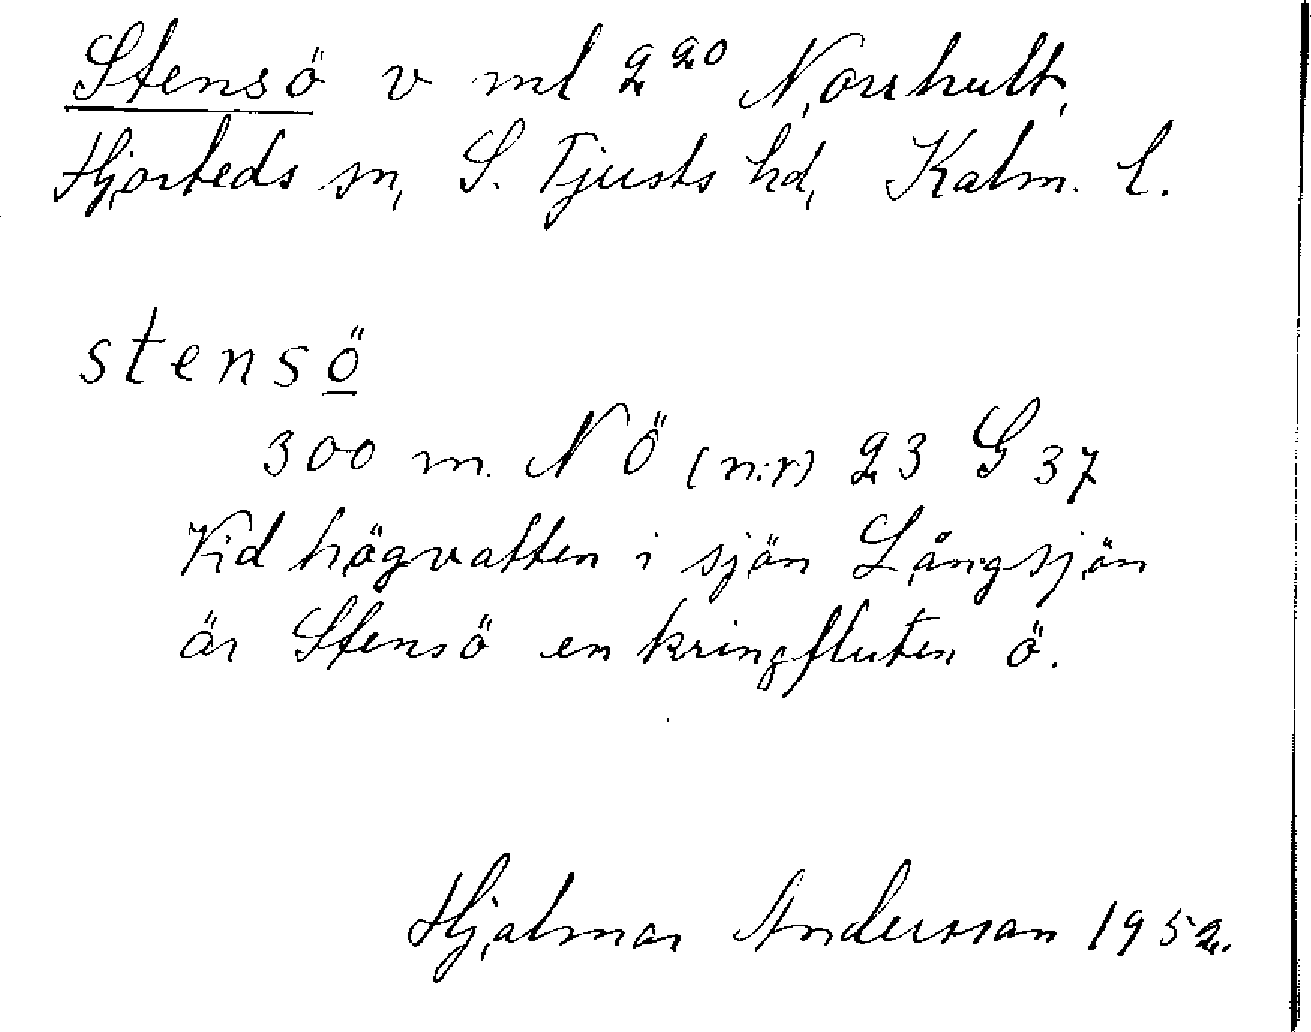 Stensö v ml 2²⁰ Norrhult,
Hjorteds sn, S. Tjusts hd, Kalm. l.
stensö
300 m. N Ö (n:r) 23 G 37
Vid högvatten i sjön Långsjön
är Stensö en kringfluten ö.
Hjalmar Andersson 1952.